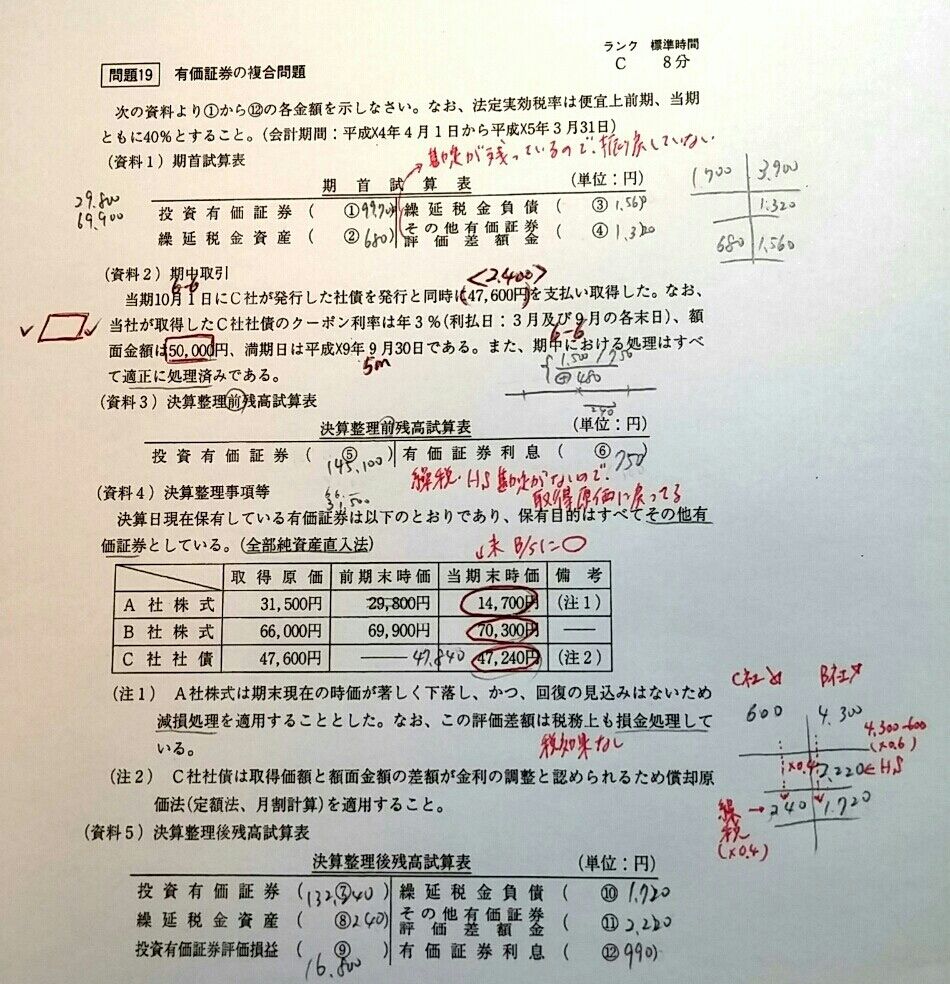 ランク 標準時間
問題19 有価証券の複合問題 C 8分
次の資料より①から⑫の各金額を示しなさい。なお、法定実効税率は便宜上前期、当期
ともに40%とすること。(会計期間:平成X4年4月1日から平成X5年3月31日)
(資料1)期首試算表
勘定が残っているので、振り戻していない
期首試算表 (単位:円)
29.800
69.900
投資有価証券 ( ①99.700) 繰延税金負債 ( ③1.560
繰延税金資産 ( ②680) その他有価証券評価差額金 ( ④1.320
1700 3.900
1.320
680 1.560
(資料2)期中取引
6-6 <2.400>
当期10月1日にC社が発行した社債を発行と同時に47,600円を支払い取得した。なお、
当社が取得したC社社債のクーポン利率は年3%(利払日:3月及び9月の各末日)、額
6-6
面金額は50,000円、満期日は平成X9年9月30日である。また、期中における処理はすべ
5m
て適正に処理済みである。
1.500 / 750
480
240
(資料3)決算整理前残高試算表
決算整理前残高試算表 (単位:円)
投資有価証券 ( ⑤ 145.100) 有価証券利息 ( ⑥ 750
繰税・HS勘定がないので、
取得原価に戻ってる
(資料4)決算整理事項等
31,500
決算日現在保有している有価証券は以下のとおりであり、保有目的はすべてその他有
価証券としている。(全部純資産直入法)
↓末B/Sに○
取得原価 前期末時価 当期末時価 備考
A社株式 31,500円 29,800円 14,700円 (注1)
B社株式 66,000円 69,900円 70,300円 ――
C社社債 47,600円 ―― 47,840 47,240円 (注2)
(注1) A社株式は期末現在の時価が著しく下落し、かつ、回復の見込みはないため
減損処理を適用することとした。なお、この評価差額は税務上も損金処理して
いる。
税効果なし
(注2) C社社債は取得価額と額面金額の差額が金利の調整と認められるため償却原
価法(定額法、月割計算)を適用すること。
C社↘ B社↗
600 4.300
4,300-600
(×0.6)
×0.4 2.220←HS
繰税→240 1.720
(×0.4)
(資料5)決算整理後残高試算表
決算整理後残高試算表 (単位:円)
投資有価証券 (132,240⑦) 繰延税金負債 ( ⑩ 1.720
繰延税金資産 ( ⑧240) その他有価証券評価差額金 ( ⑪2,220
投資有価証券評価損益 ( ⑨ 16.800) 有価証券利息 ( ⑫990)